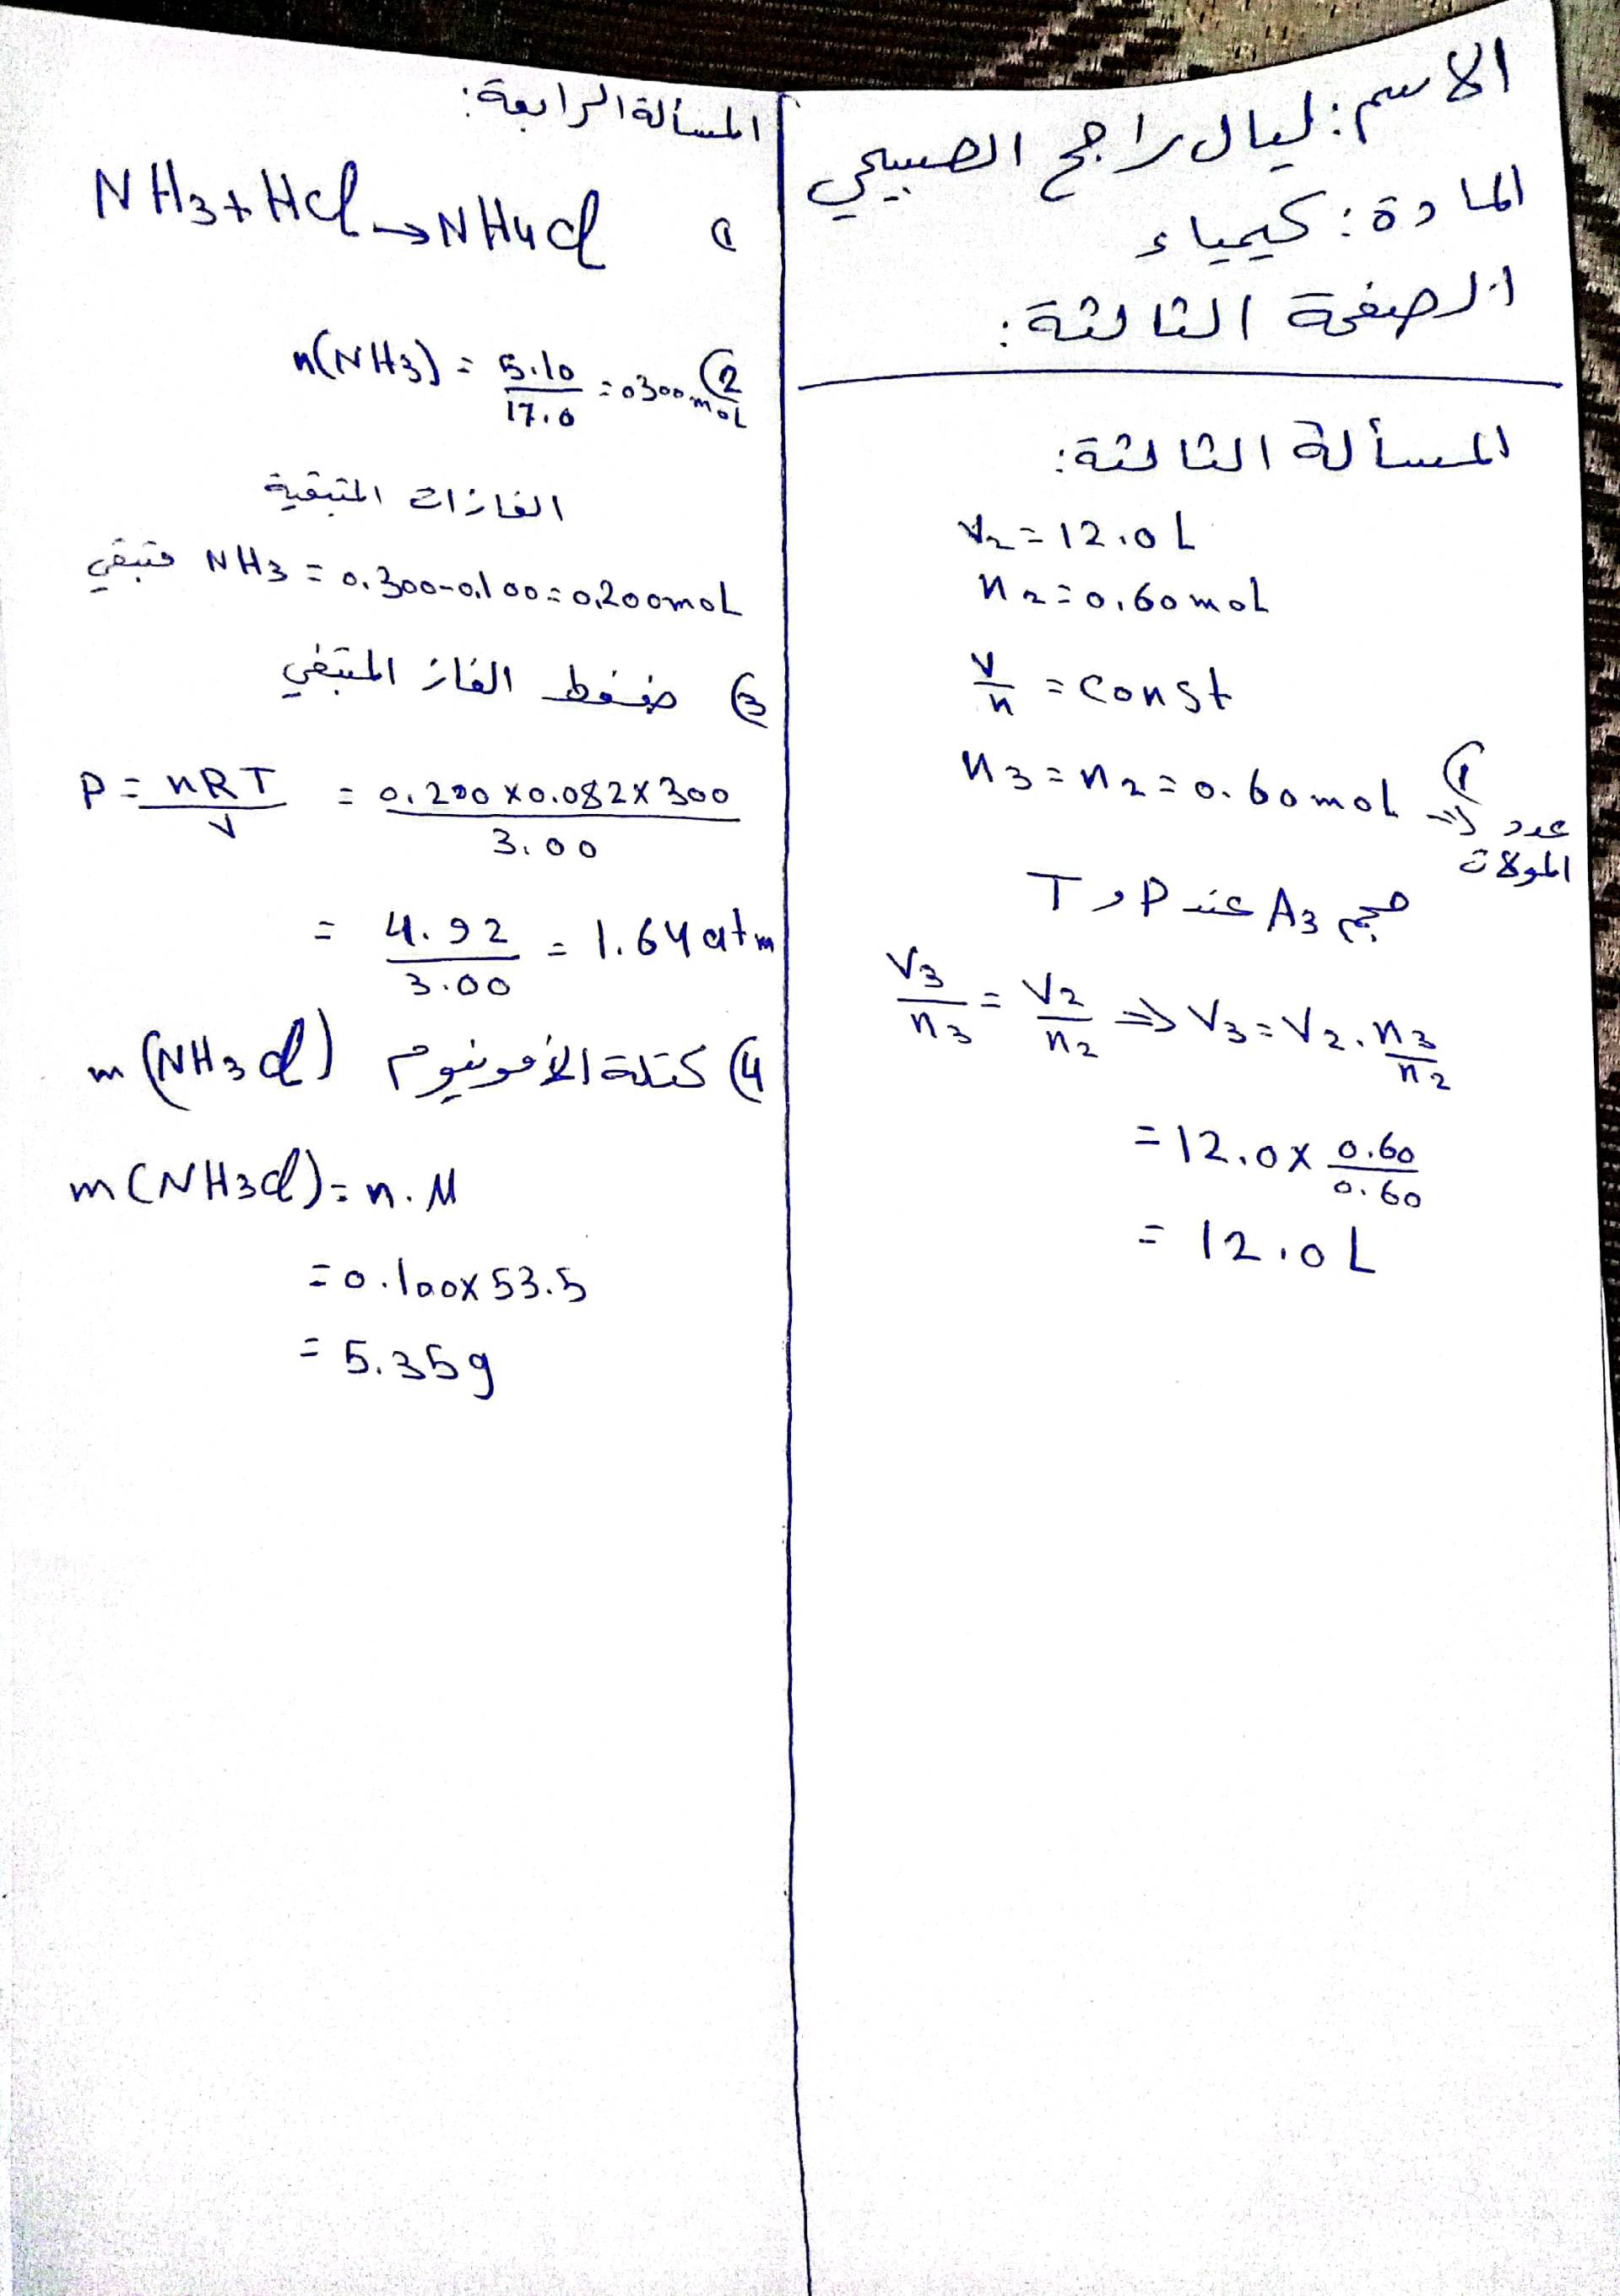 الاسم: ليال راجح الصبيحي
المادة: كيمياء
الصفحة الثالثة:
المسألة الثالثة:
V2 = 12.0 L
n2 = 0.60 mol
V/n = const
1) عدد المولات ⇐ n3 = n2 = 0.60 mol
حجم A3 عند P و T
V3/n3 = V2/n2 ⇒ V3 = V2 . n3/n2
= 12.0 x 0.60/0.60
= 12.0 L
المسألة الرابعة:
1) NH3 + HCl → NH4Cl
2) n(NH3) = 5.10/17.0 = 0300 mol
الغازات المتبقية
NH3 = 0.300 - 0.100 = 0.200 mol متبقي
3) ضغط الغاز المتبقي
P = nRT/V = 0.200 x 0.082 x 300/3.00
= 4.92/3.00 = 1.64 atm
4) كتلة الأمونيوم m(NH3Cl)
m(NH3Cl) = n . M
= 0.100 x 53.5
= 5.35 g